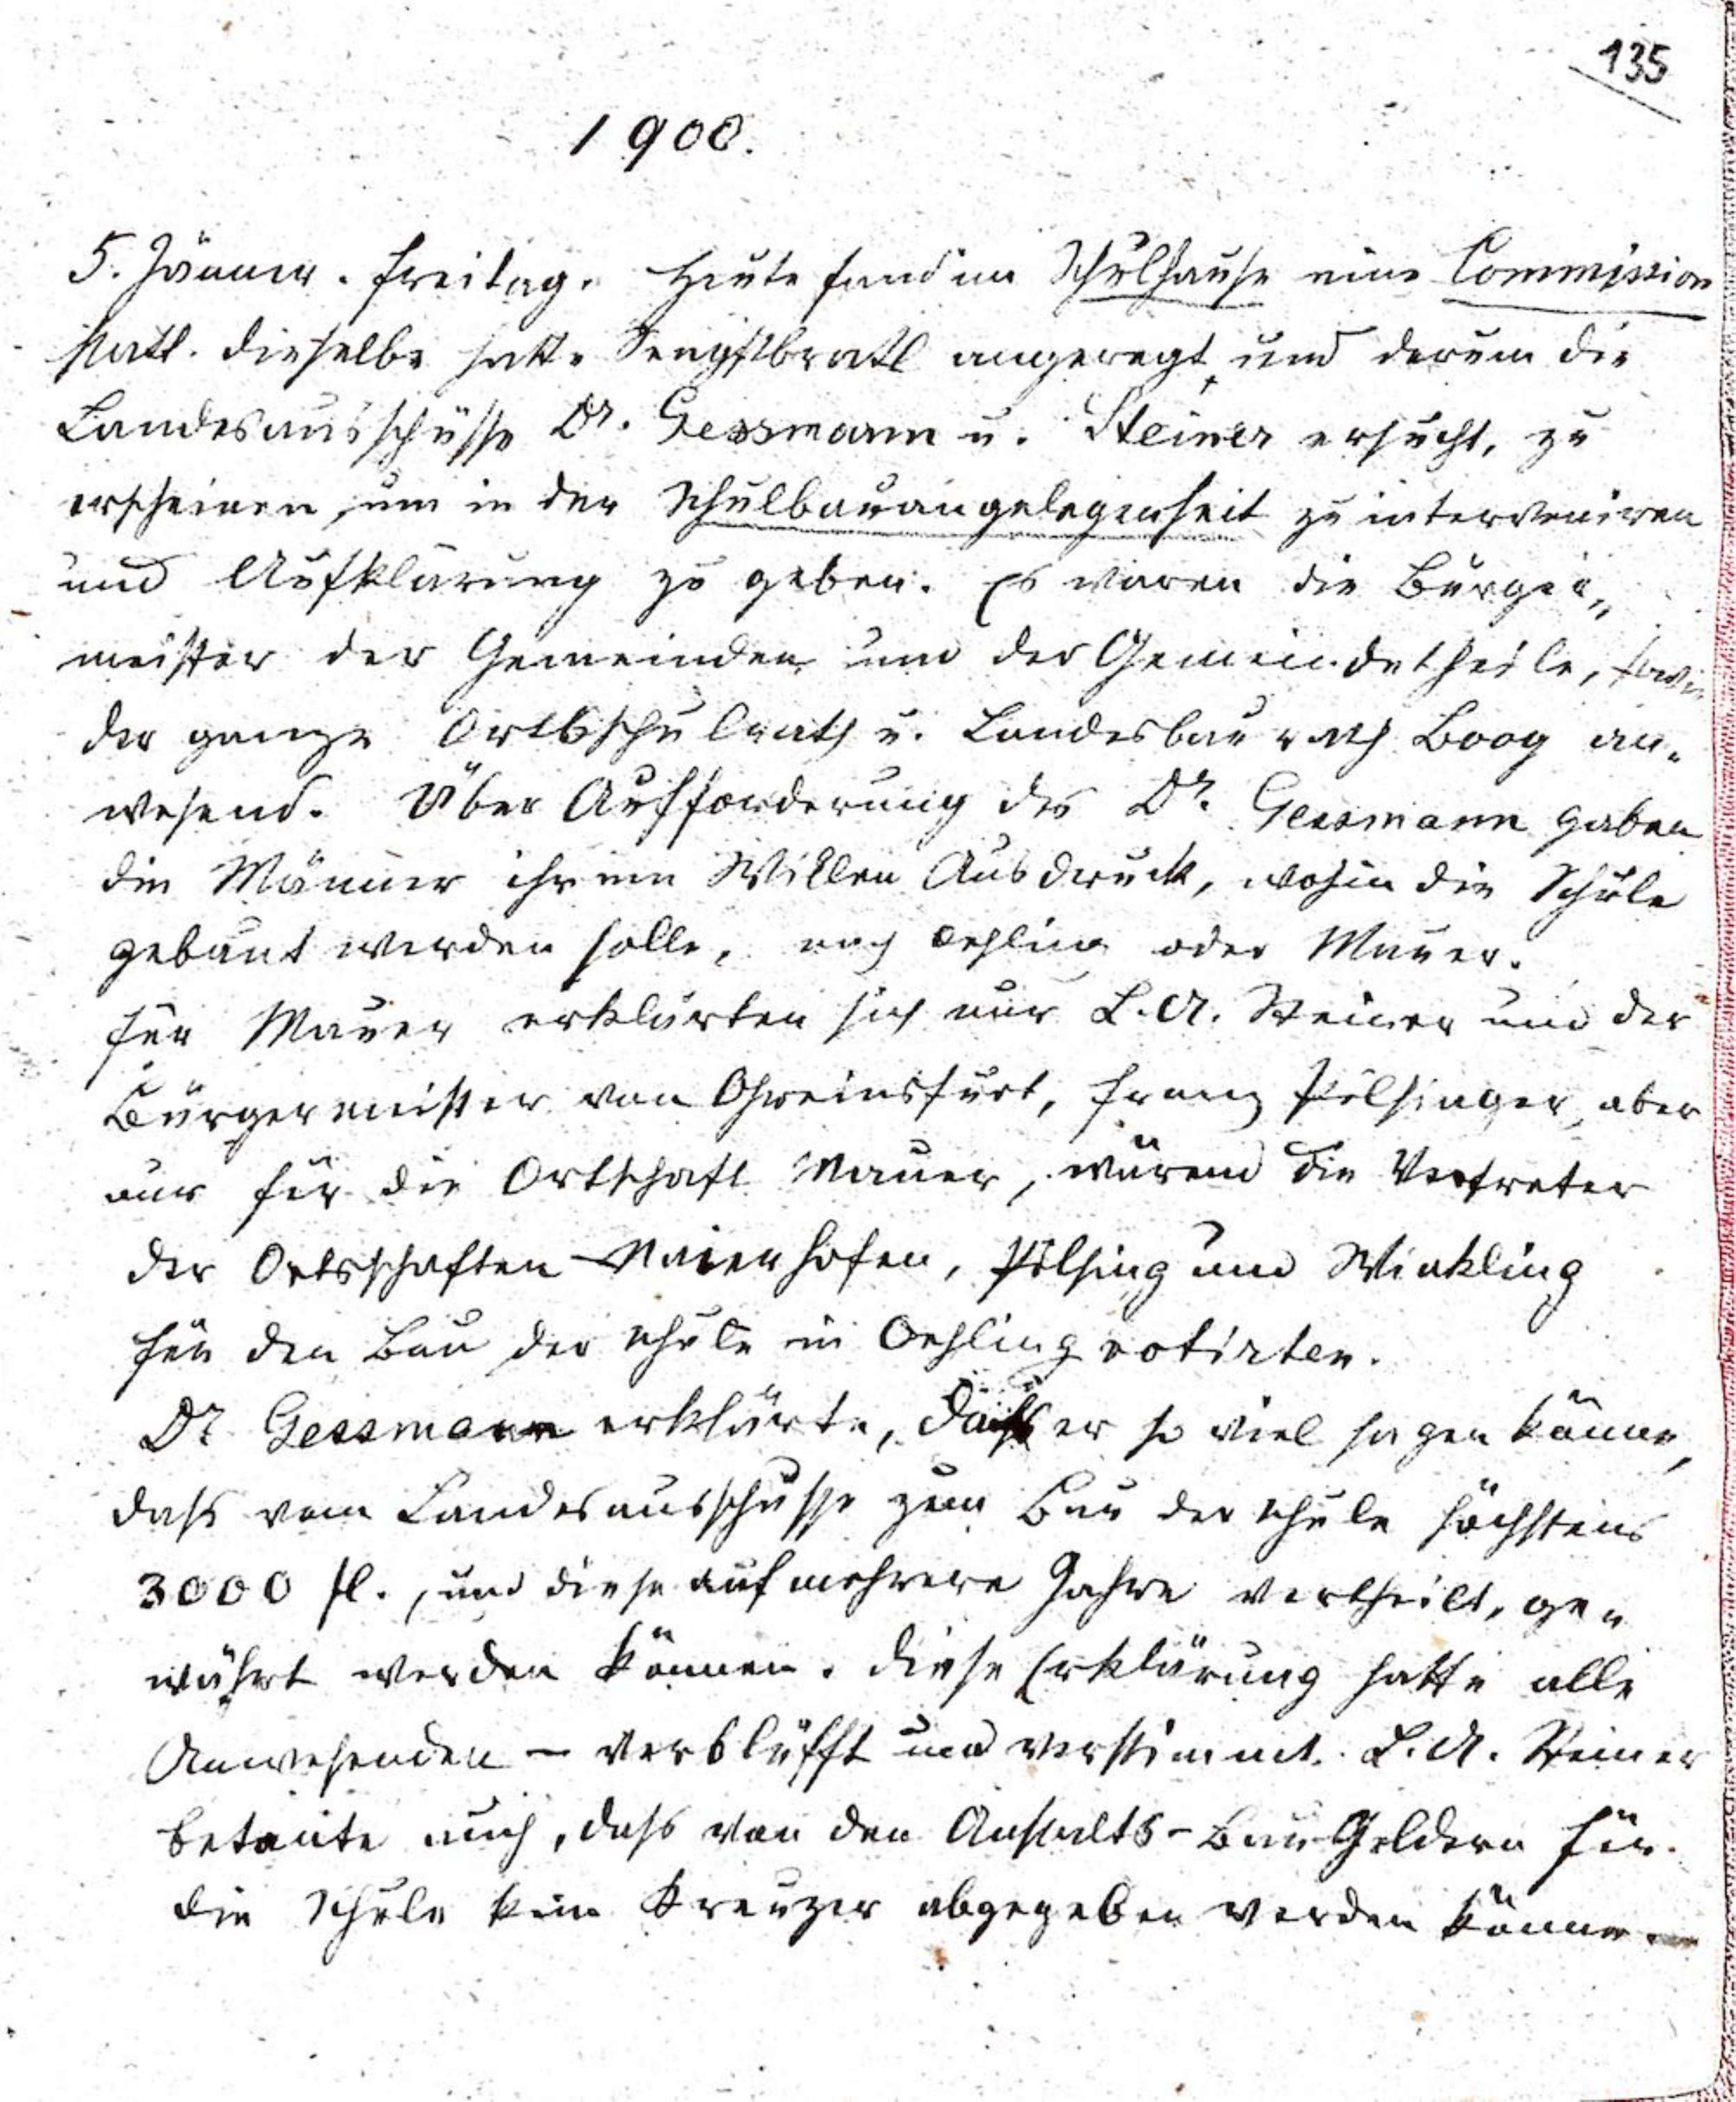 135
1900.
5. Jänner. Freitag. Heute fand im Schulhause eine Commission
statt. Dieselbe hatte Sengstbratl angeregt und darum die
Landesausschüsse Dr. Gessmann u. Steiner ersucht, zu
erscheinen, um in der Schulbauangelegenheit zu interveniren
und Aufklärung zu geben. Es waren die Bürger„
meister der Gemeinden und der Gemeindetheile, sowie
der ganze Ortsschulrath u. Landesbaurath Boog an„
wesend. Über Aufforderung des Dr. Gessmann gaben
die Männer ihrem Willen Ausdruck, wohin die Schule
gebaut werden solle, nach Oehling oder Mauer.
Für Mauer erklärten sich nur L. A. Steiner und der
Bürgermeister von Greinsfurt, Franz Pilsinger, aber
nur für die Ortschaft Mauer, wärend die Vertreter
der Ortsschaften Maierhofen, Pilsing und Winkling
für den Bau der Schule in Oehling votirten.
Dr Gessmann erklärte, dass er so viel sagen könne,
dass vom Landesausschusse zum Bau der Schule höchstens
3000 fl., und diese auf mehrere Jahre vertheilt, ge„
währt werden können. Diese Erklärung hatte alle
Anwesenden – verblüfft und verstimmt. L. A. Steiner
betonte auch, dass von den Anstalts-Bau Geldern für
die Schule kein Kreuzer abgegeben werden könne. –